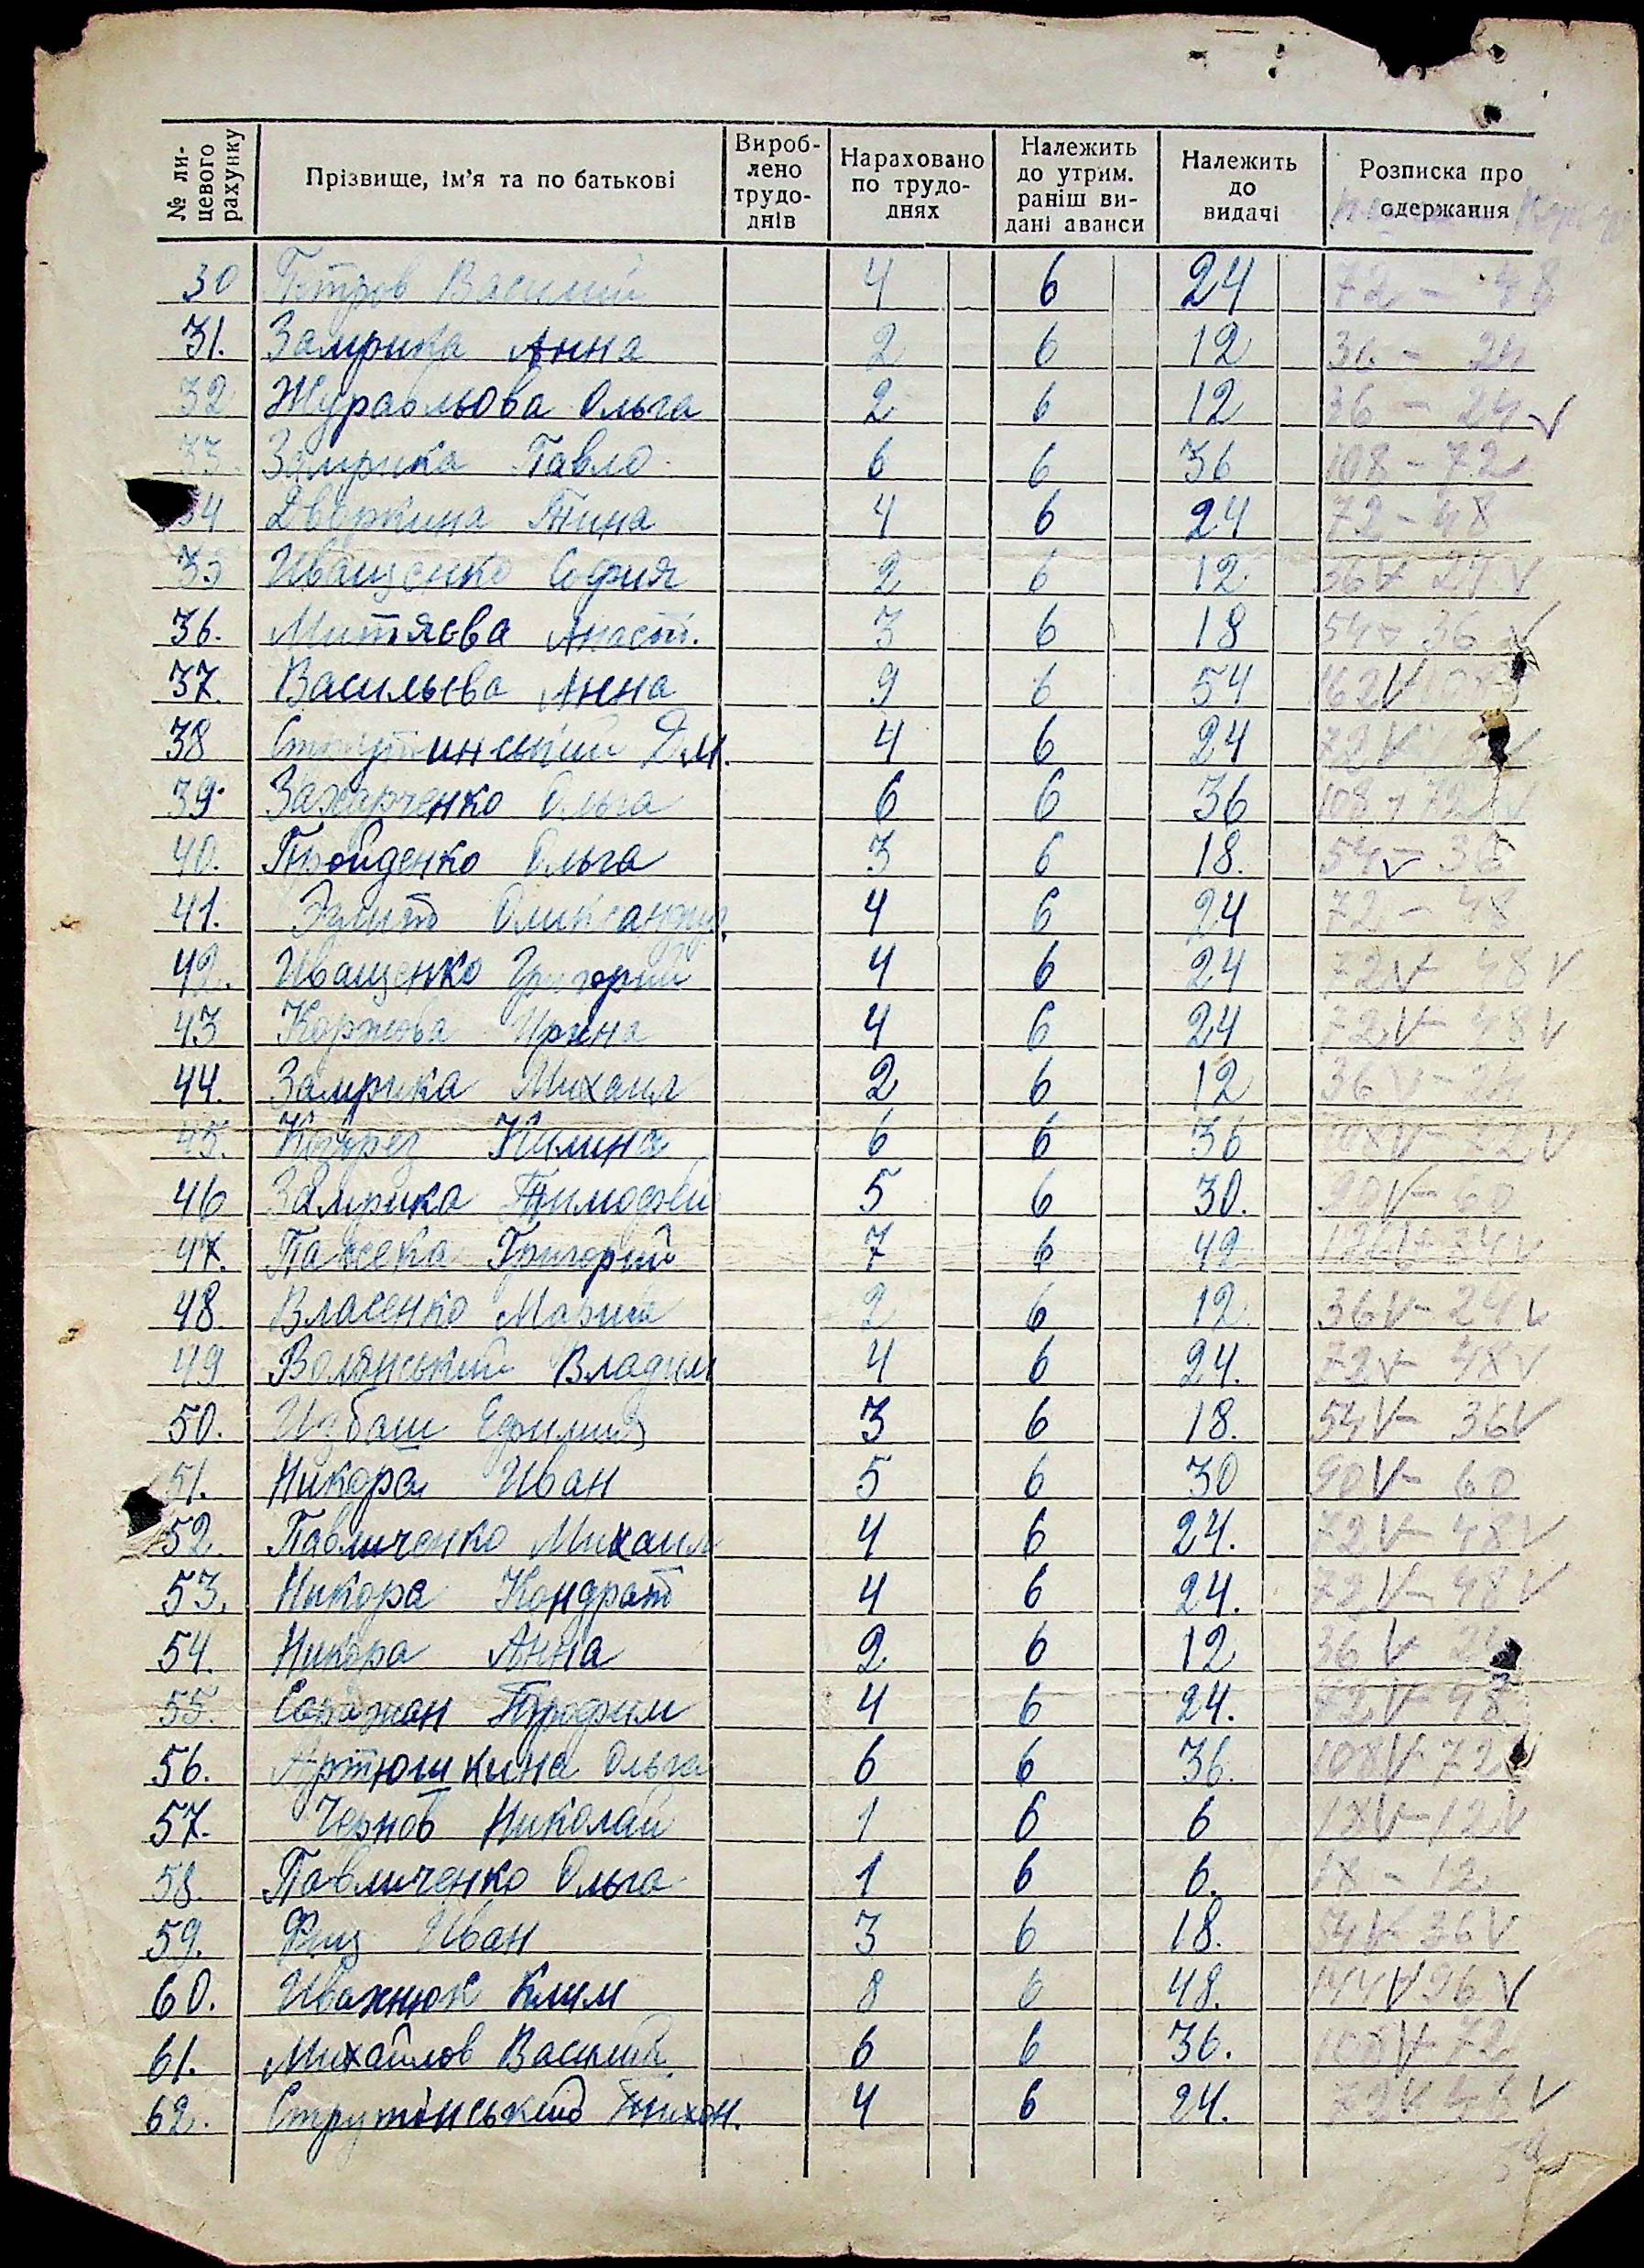 № лицевого рахунку | Прізвище, ім'я та по батькові | Вироблено трудоднів | Нараховано по трудоднях | Належить до утрим. раніш видані аванси | Належить до видачі | Розписка про одержання
30 Петров Василий 4 6 24 72 - 48
31. Замрика Анна 2 6 12 36 - 24
32 Журавльова Ольга 2 6 12 36 - 24 v
33. Замрика Павло 6 6 36 108 - 72
34 Дворкина Тина 4 6 24 72 - 48
35 Иващенко София 2 6 12 36 v 24 v
36. Митяєва Анаст. 3 6 18 54 v 36 v
37. Васильєва Анна 9 6 54 162 v 108
38 Дм. 4 6 24 72 v
39. Захарченко Ольга 6 6 36 108 - 72 v
40. Ольга 3 6 18. 54 v 36
41. 4 6 24 72 - 48
42. Иващенко Григорий 4 6 24 72 v 48 v
43 Ирина 4 6 24 72 v 48 v
44. Замрика Михаил 2 6 12 36 v - 24
45. Килина 6 6 36 108 v - 72 v
46 Замрика Тимофей 5 6 30. 90 v - 60
47. Пасека Григорий 7 6 42 126 v 84 v
48 Власенко Мария 2 6 12. 36 v - 24 v
49 Волянський Владим 4 6 24. 72 v 48 v
50. Избаш 3 6 18. 54 v - 36 v
51. Никора Иван 5 6 30 90 v - 60
52. Павличенко Михаил 4 6 24. 72 v - 48 v
53. Никора Кондрат 4 6 24. 72 v - 48 v
54. Никора Анна 2 6 12 36 v 24
55. Трофим 4 6 24. 72 v - 48
56. Артюшкина Ольга 6 6 36. 108 v - 72
57. Чернов Николай 1 6 6 18 v - 12 v
58. Павличенко Ольга 1 6 6. 18 - 12
59. Иван 3 6 18. 54 v 36 v
60. Ивахнюк Клим 8 6 48. 144 v 96 v
61. Михайлов Василий 6 6 36. 108 v 72
62. Струтінський Тихон. 4 6 24. 72 v 48 v